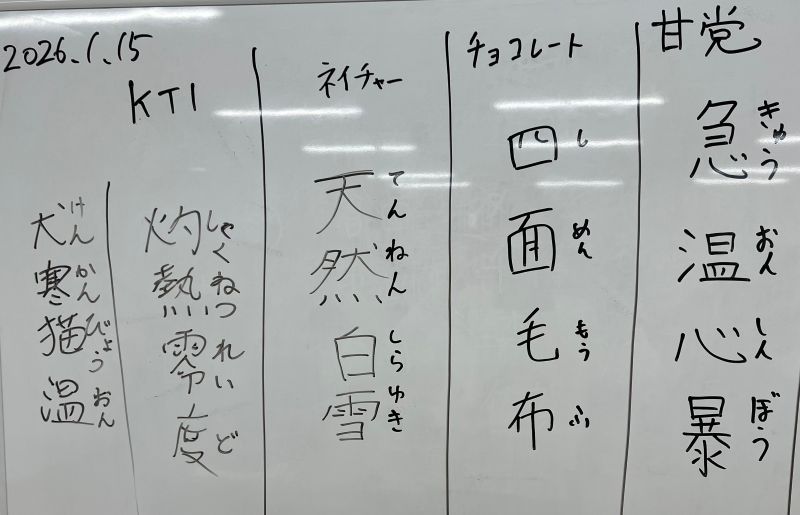 2026.1.15
甘党
急温心暴
きゅうおんしんぼう
チョコレート
四面毛布
しめんもうふ
ネイチャー
天然白雪
てんねんしらゆき
KTI
灼熱零度
しゃくねつれいど
犬寒猫温
けんかんびょうおん